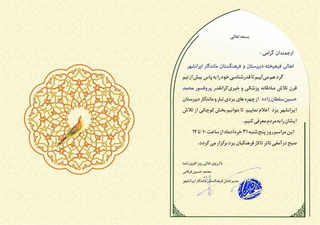 بسمه تعالی
ارجمندان گرامی :
اهالی فرهیخته دبیرستان و فرهنگستان ماندگار ایرانشهر
گرد هم می‌آییم تا قدرشناسی خود را به پاس بیش از نیم
قرن تلاش صادقانه پزشکی و خیری گرانقدر پروفسور محمد
حسین سلطان زاده از چهره های یزدی تبار و ماندگار دبیرستان
ایرانشهر یزد اعلان نماییم تا بتوانیم بخش کوچکی از تلاش
ایشان را به مردم معرفی کنیم.
این مراسم روز پنج شنبه ۳۱ خرداد ماه از ساعت ۱۰ تا ۱۲
صبح در آمفی تاتر تالار فرهنگیان یزد برگزار می گردد.
با آرزوی تعالی روز افزون شما
محمد حسین فرقانی
مدیر عامل فرهنگستان ماندگار ایرانشهر